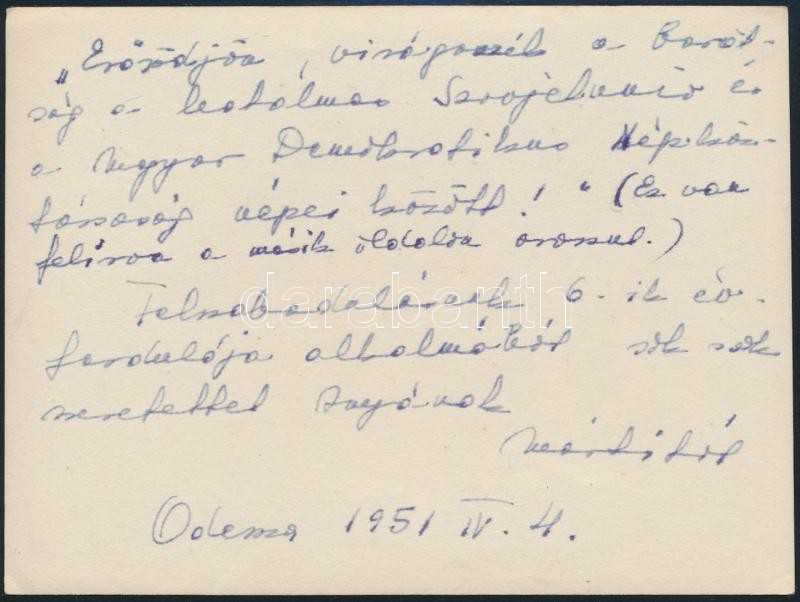 „Erősödjön, virágozzék a Barát-
ság a hatalmas Szovjetunió és
a Magyar Demokratikus Népköz-
társaság népei között!" (Ez van
felírva a másik oldalon oroszul.)
Felszabadulásunk 6.-ik év-
fordulója alkalmából sok sok
szeretettel anyának
Mártitól
Odessa 1951 IV. 4.
darabanth